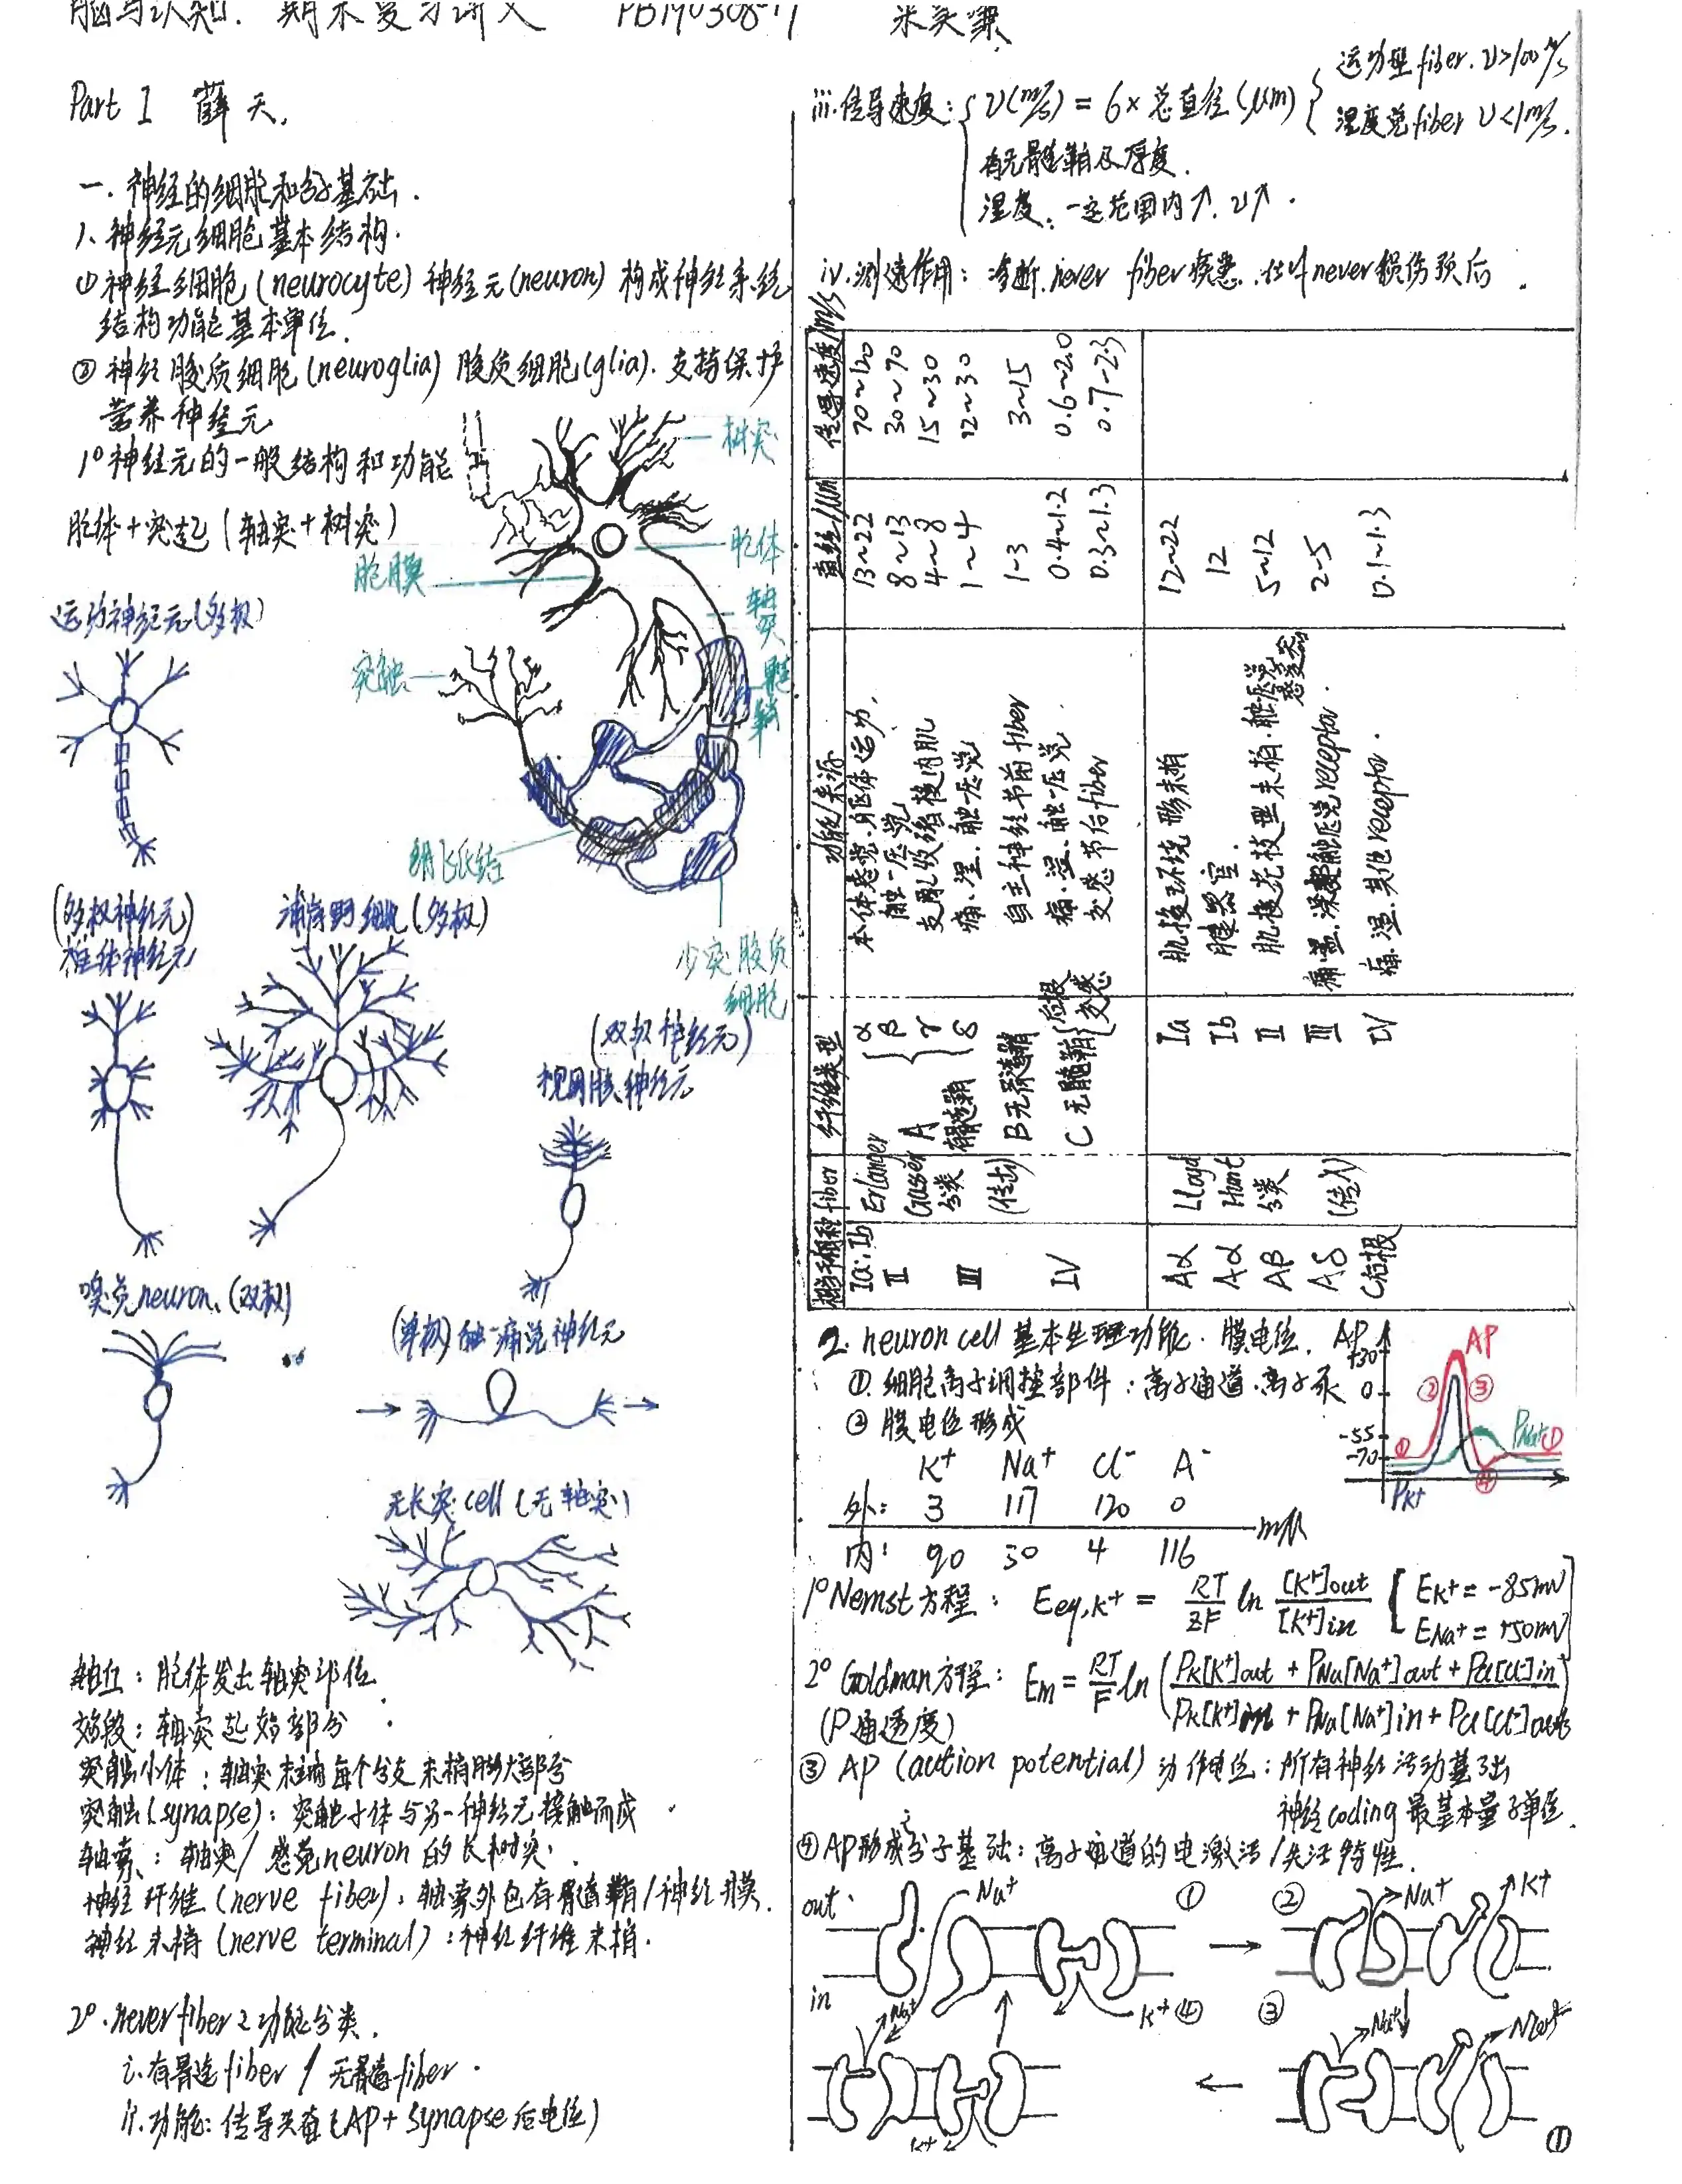 脑与认知. 期末复习讲义 PB17030877 米奕霖
Part I 薛天.
一. 神经的细胞和分子基础.
1、神经元细胞基本结构.
① 神经细胞(neurocyte) 神经元(neuron) 构成神经系统
结构功能基本单位.
② 神经胶质细胞(neuroglia) 胶质细胞(glia). 支持保护
营养神经元
1° 神经元的一般结构和功能
胞体+突起(轴突+树突)
树突
胞体
胞膜
轴突
髓鞘
突触
郎飞氏结
少突胶质
细胞
运动神经元(多极)
(多极神经元)
椎体神经元
浦肯野细胞(多极)
(双极神经元)
视网膜神经元
嗅觉neuron.(双极)
(单极)触-痛觉神经元
无长突cell(无轴突)
轴丘:胞体发出轴突部位
始段:轴突起始部分.
突触小体:轴突末端每个分支末梢膨大部分
突触(synapse):突触小体与另一神经元接触而成.
轴索:轴突/感觉neuron的长树突.
神经纤维(nerve fiber):轴索外包有髓鞘/神经膜.
神经末梢(nerve terminal):神经纤维末梢.
2°.never fiber 之功能分类.
i.有髓鞘fiber / 无髓鞘fiber.
ii.功能:传导兴奋(AP+synapse后电位)
iii.传导速度: v(m/s) = 6×总直径(μm)
运动型fiber. v>100m/s
温度觉fiber v<1m/s.
有无髓鞘及厚度.
温度:一定范围内↑. v↑.
iv.测速作用:诊断never fiber疾患.估计never损伤预后.
相当于何种fiber 纤维类型 功能/来源 直径/μm 传导速度/m/s
Ia.Ib Erlanger Gasser 分类 (传出) A 有髓鞘 α 本体感觉.躯体运动. 13~22 70~120
II β 触-压觉 8~13 30~90
γ 支配γ收缩梭内肌 4~8 15~30
III δ 痛.温.触-压觉 1~4 12~30
B 自主神经节前fiber 1-3 3~15
IV C 无髓鞘 后根 痛.温.触-压觉. 0.4~1.2 0.6~2.0
交感 交感节后fiber 0.3~1.3 0.7~2.3
Aα Lloyd Hunt 分类 (传入) Ia 肌梭环绕形末梢 12~22
Aα Ib 腱器官. 12
Aβ II 肌梭花枝型末梢.触压觉 5~12
Aδ III 痛.温.深触压觉receptor. 2-5
C后根 IV 痛.温.其他receptor. 0.1~1.3
2. neuron cell 基本生理功能. 膜电位.
①. 细胞离子调控部件:离子通道.离子泵
② 膜电位形成
AP
+30
0
-55
-70
AP
① ② ③ ④ ①
PNa+
PK+
K+ Na+ Cl- A-
外: 3 117 120 0
mM
内: 90 30 4 116
1° Nernst方程: Eeq,K+ = RT/ZF ln [K+]out/[K+]in [EK+ = -85mV
ENa+ = +50mV]
2° Goldman方程: Em = RT/F ln (PK[K+]out + PNa[Na+]out + PCl[Cl-]in / PK[K+]in + PNa[Na+]in + PCl[Cl-]out)
(P通透度)
③ AP (aution potential) 动作电位:所有神经活动基础
神经coding最基本量子单位.
④ AP形成分子基础:离子通道的电激活/失活特性.
out. Na+ ① ② Na+ K+
in K+ ④ ③
Na+ Na+
K+
①